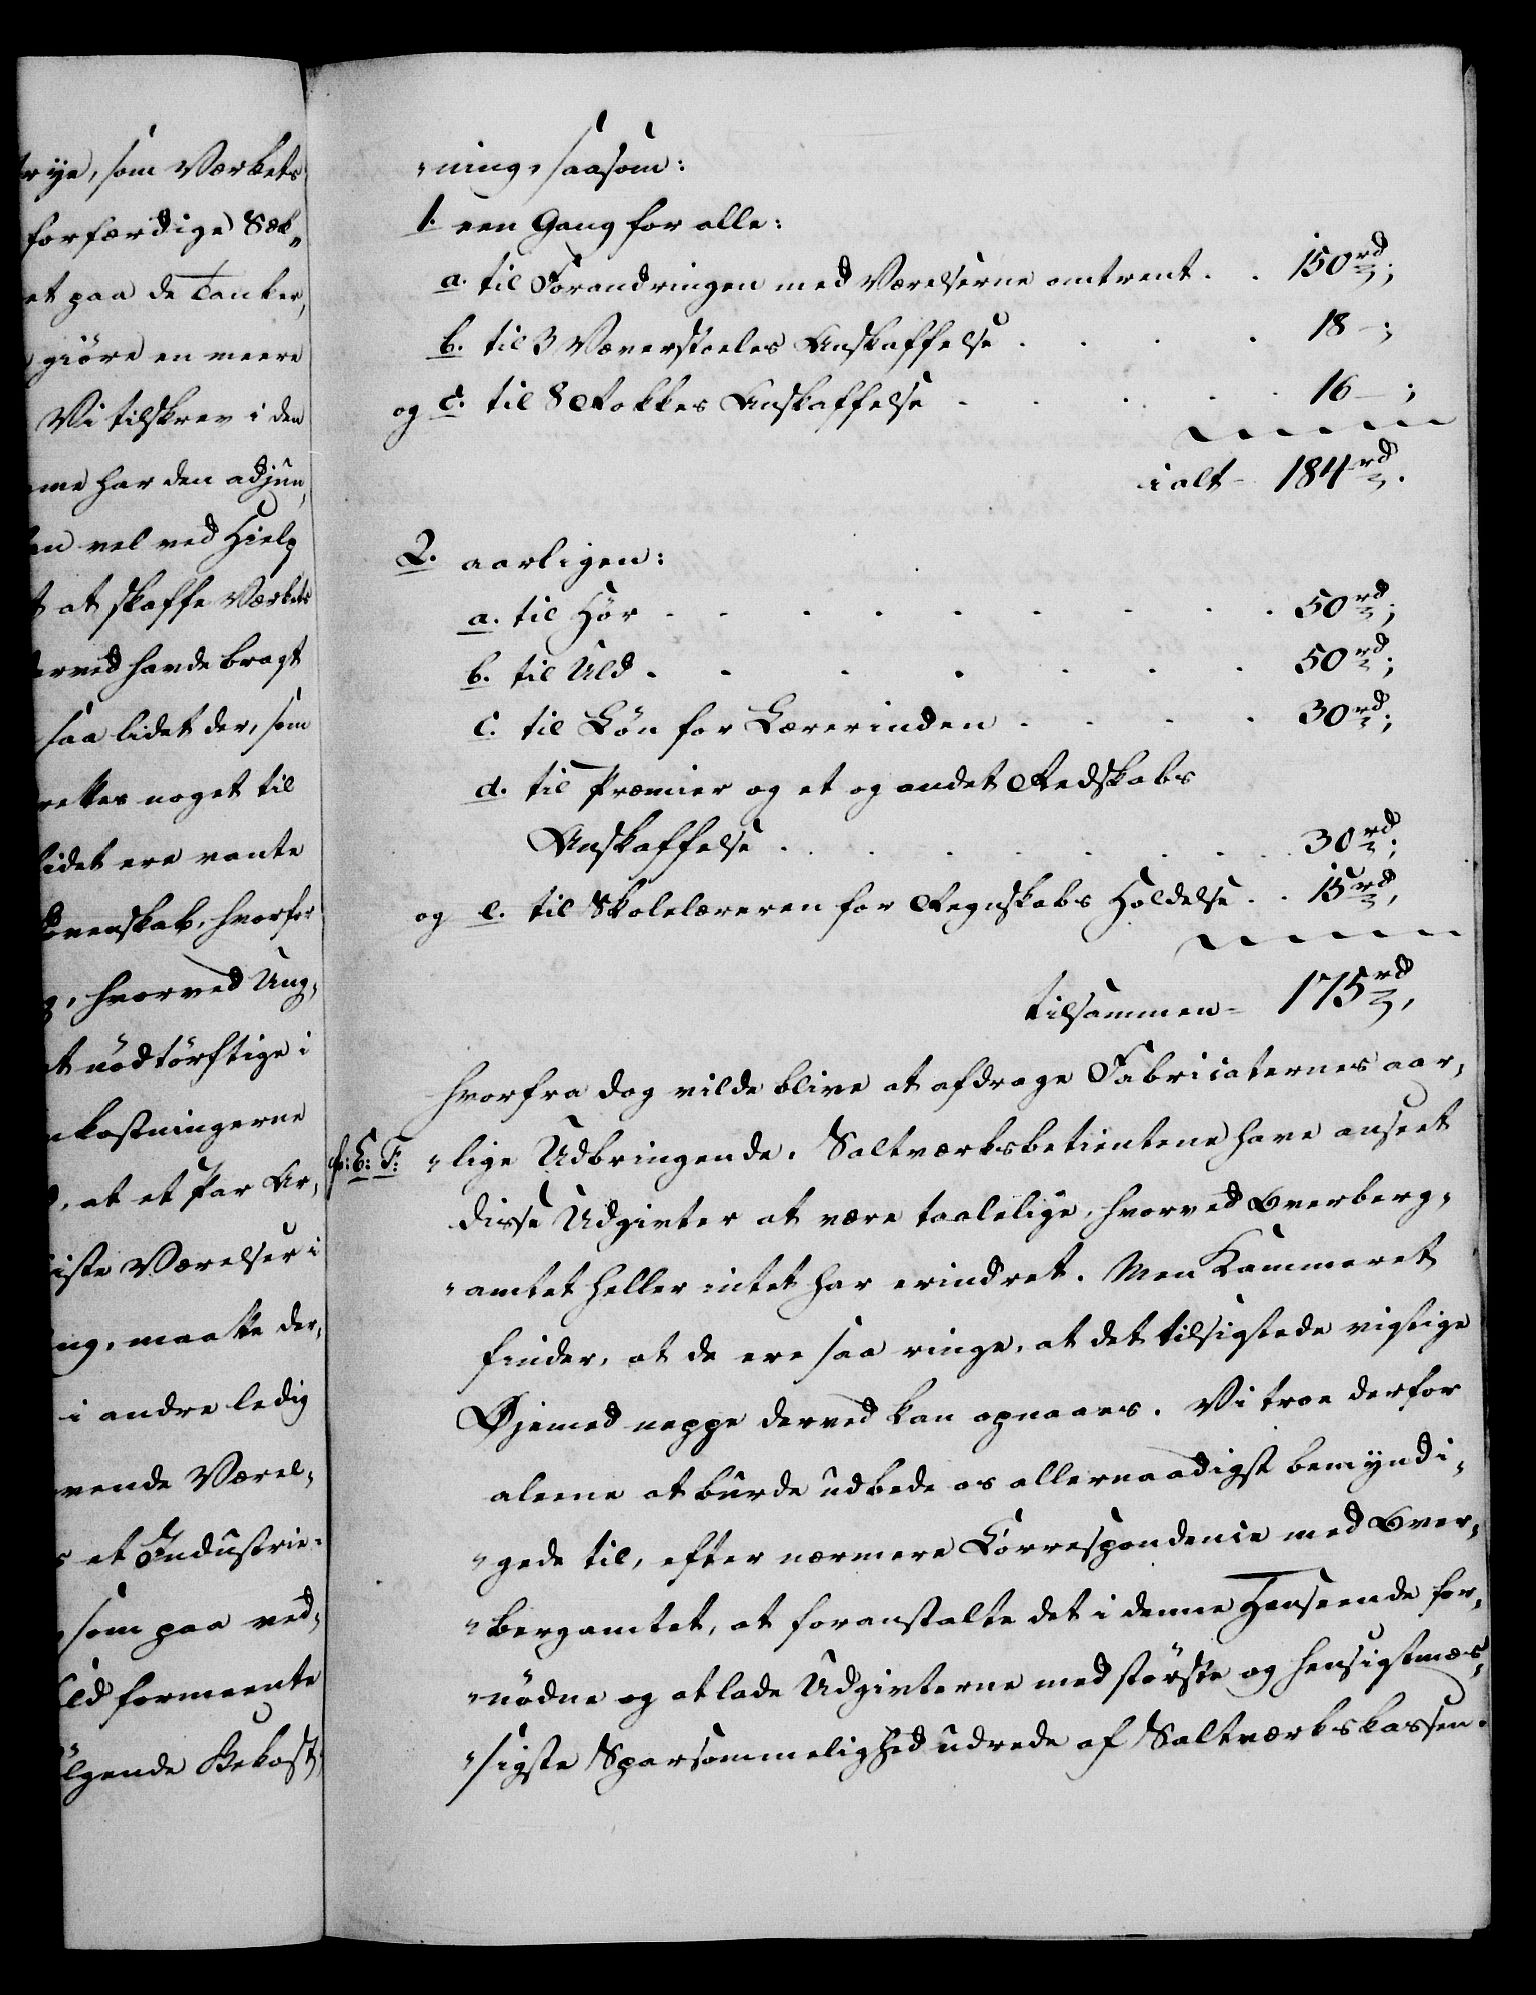 rije, som Værkets
forfærdige Sæk„
et paa de Tanker,
giöre en meere
Vi tilskrev i den
me har den adjun„
vel ved Hielp
at skaffe Værkets
derved havde bragt
saa lidet der, som
rettes noget til
lidet ere vante
hvorfor
, hvorved Ung„
nödtörftige i
kostningerne
, at et Par Ar„
Værelser i
ng, maatte der„
i andre ledig
vende Værel„
et Industrie„
som paa ved„
formeente
lgende Bekost„
„ning, saasom:
1. een Gang for alle:
a. til Forandringen med Værelserne omtrent . . 150 rd;
b. til 3 Væverstoeles Anskaffelse . . . . 18 –;
og c. til 8 Rokkes Anskaffelse . . . . . 16 –;
ialt – 184 rd.
2. aarligen:
a. til Hör . . . . . . . . . 50 rd;
b. til Uld . . . . . . . 50 rd;
c. til Lön for Lærerinden . . . . 30 rd;
d. til Præmier og et og andet Redskabs
Anskaffelse . . . . . . . . 30 rd;
og e. til Skolelæreren for Regnskabs Holdelse . . 15 rd,
tilsammen = 175 rd,
hvorfra dog vilde blive at afdrage Fabricaternes aar„
„lige Udbringende. Saltværksbetientene have anseet
disse Udgivter at være taalelige, hvorved Overberg„
„amtet heller intet har erindret. Men Kammeret
finder, at de ere saa ringe, at det tilsigtede vigtige
Øjemed neppe derved kan opnaaes. Vi troe derfor
aleene at burde udbede os allernaadigst bemyndi„
„gede til, efter nærmere Correspondence med Over„
„bergamtet, at foranstalte det i denne Henseende for„
„nödne og at lade Udgivterne med störste og hensigtmæs„
„sigste Sparsommelighed udrede af Saltværkskassen.